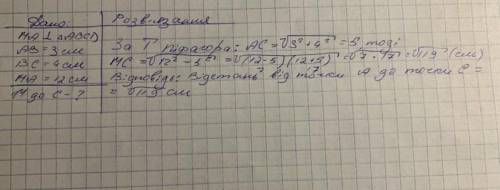 Дано:
MA ⊥ (ABCD)
AB = 3 см
BC = 4 см
MA = 12 см
M до C - ?
Розв'язання
За Т Піфагора: AC = √3² + 4² = 5, тоді
MC = √12² - 5² = √(12-5)(12+5) = √7 · 17 = √119 (см)
Відповідь: Відстань від точки до точки C =
= √119 см